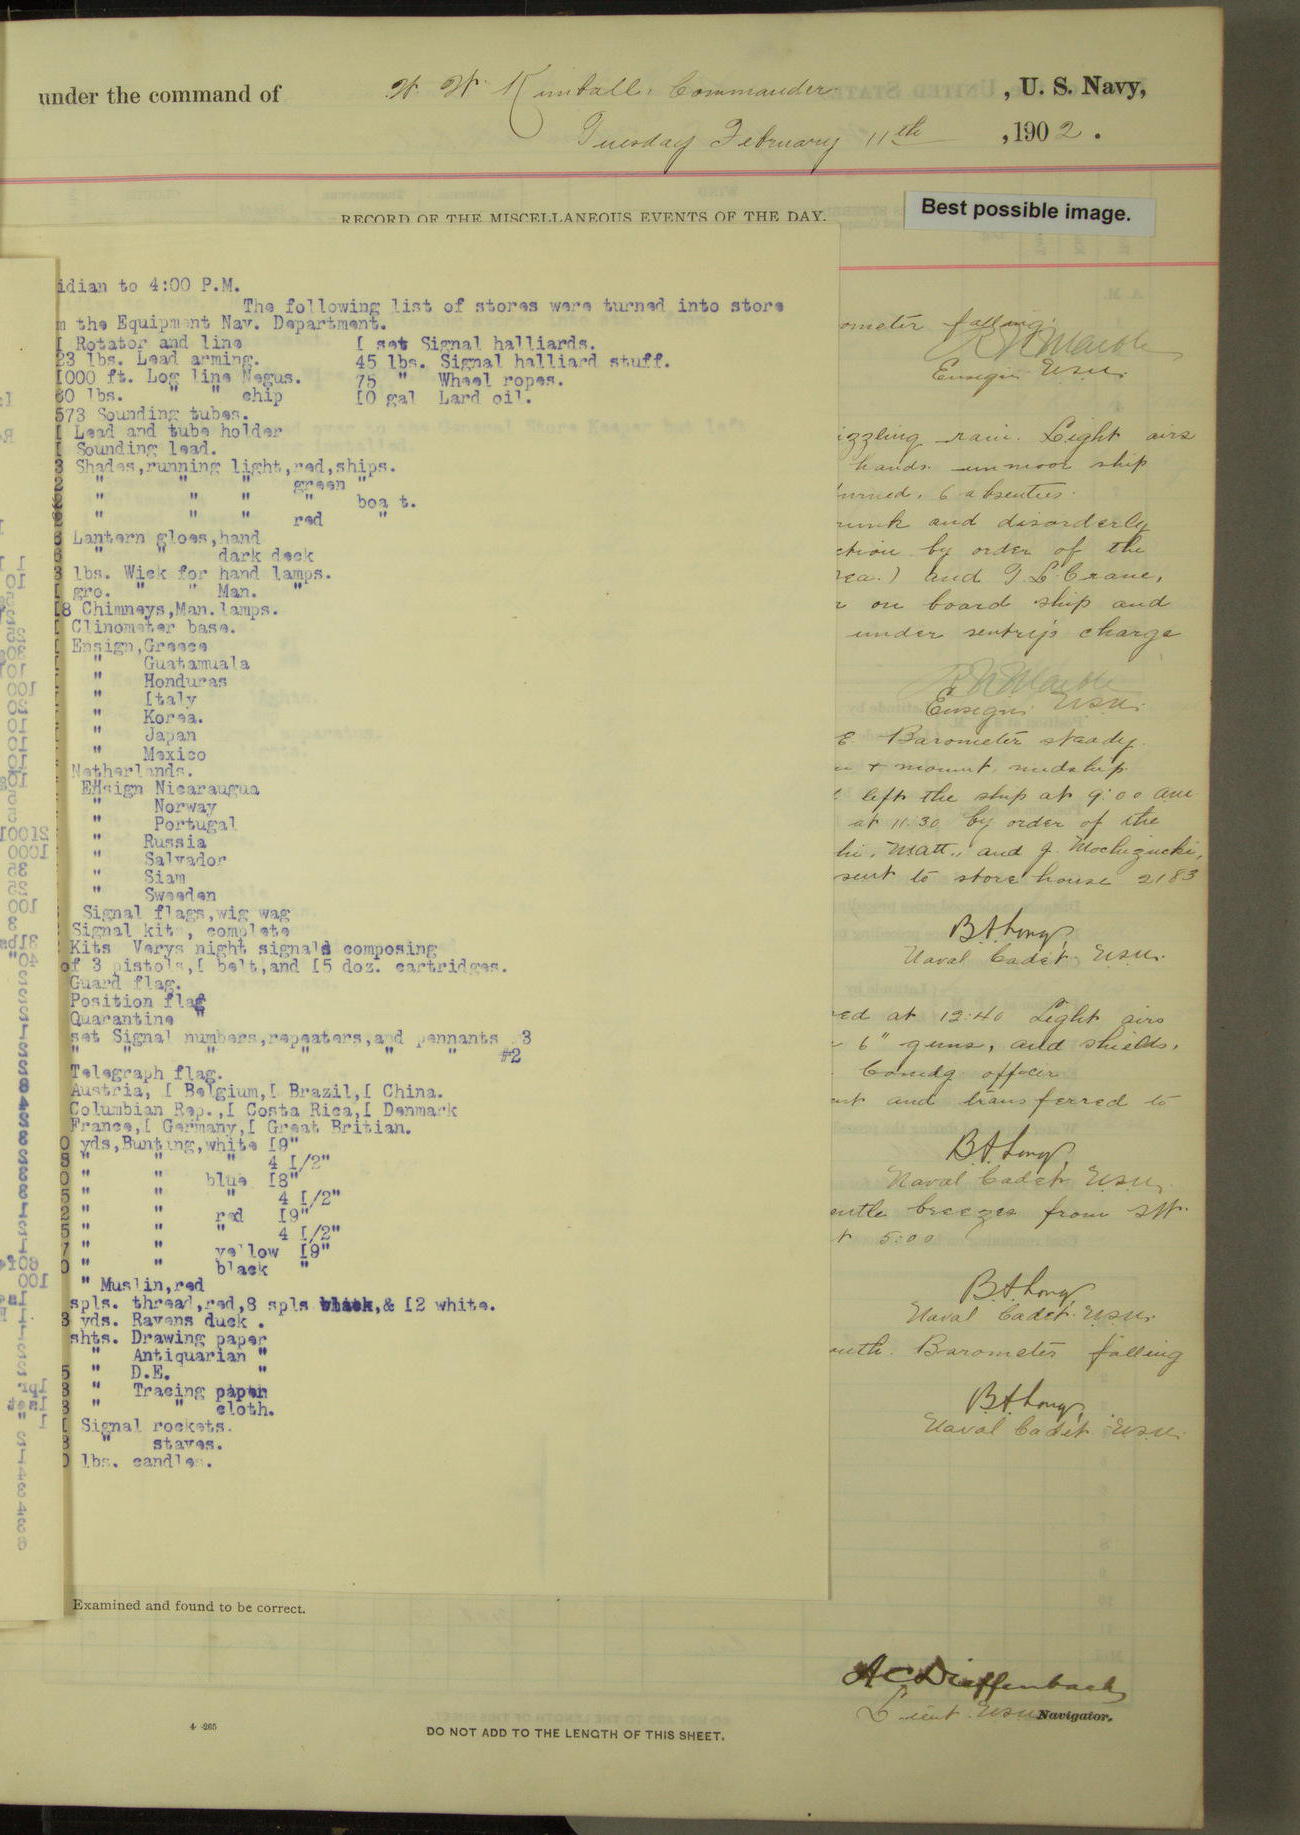 under the command of W. W. Kimball, Commander, U. S. Navy,
Tuesday February 11th, 1902.
RECORD OF THE MISCELLANEOUS EVENTS OF THE DAY.
Best possible image.
idian to 4:00 P.M.
The following list of stores were turned into store
m the Equipment Nav. Department.
I Rotator and line I set Signal halliards.
23 lbs. Lead arming. 45 lbs. Signal halliard stuff.
I000 ft. Log line Negus. 75 " Wheel ropes.
60 lbs. " " chip I0 gal Lard oil.
573 Sounding tubes.
I Lead and tube holder
I Sounding lead.
3 Shades,running light,red,ships.
2 " " " green "
" " " " boa t.
" " " red "
Lantern gloes,hand
" " dark deck
3 lbs. Wick for hand lamps.
I gro. " " Man. "
I8 Chimneys,Man.lamps.
I Clinometer base.
I Ensign,Greece
I " Guatamuala
I " Honduras
" Italy
" Korea.
" Japan
" Mexico
Netherlands.
Ensign Nicaraugua
" Norway
" Portugal
" Russia
" Salvador
" Siam
" Sweeden
Signal flags,wig wag
Signal kit , complete
Kits Verys night signals composing
of 3 pistols,I belt,and I5 doz. cartridges.
Guard flag.
Position flag
Quarantine "
set Signal numbers,repeaters,and pennants 3
" " " " " " #2
Telegraph flag.
Austria, I Belgium,I Brazil,I China.
Columbian Rep.,I Costa Rica,I Denmark
France,I Germany,I Great Britian.
0 yds,Bunting,white I9"
8 " " " 4 I/2"
0 " " blue I8"
5 " " " 4 I/2"
2 " " red I9"
5 " " " 4 I/2"
7 " " yellow I9"
0 " " black "
" Muslin,red
spls. thread,red,8 spls black,& I2 white.
3 yds. Ravens duck .
shts. Drawing paper
" Antiquarian "
5 " D.E. "
8 " Tracing paper
8 " " cloth.
I Signal rockets.
8 " staves.
0 lbs. candles.
ometer falling.
Ensign U.S.N.
izzling rain. Light airs
hands unmoor ship
turned, 6 absentees.
runk and disorderly
ction by order of the
and G. L. Crane,
on board ship and
under sentry's charge
Ensign U.S.N.
E Barometer steady.
+ mount. midship
left the ship at 9:00 am
at 11.30 by order of the
hi, Matt., and J. Mochizuki,
sent to store house 2183
B.A. Long,
Naval Cadet U.S.N.
ed at 12:40 Light airs
6" guns, and shields,
Comdg officer
and transferred to
B.A. Long,
Naval Cadet U.S.N.
entle breezes from SW.
5:00
B.A. Long
Naval Cadet U.S.N.
outh. Barometer falling
B.A. Long,
Naval Cadet U.S.N.
Examined and found to be correct.
A C Dieffenbach
Lieut. U.S.N. Navigator.
4-265
DO NOT ADD TO THE LENGTH OF THIS SHEET.